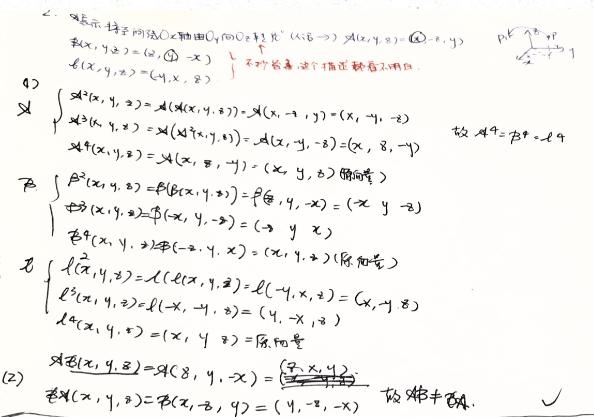 2. 𝒜表示将空间绕Ox轴由Oy向Oz转90° (A(x,y,z)=(x,-z,y)
B(x,y,z)=(z,y,-x)
C(x,y,z)=(-y,x,z)
不
这个描述我看不明白
1)
A { A²(x,y,z)=A(A(x,y,z))=A(x,-z,y)=(x,-y,-z)
A³(x,y,z)=A(A²(x,y,z))=A(x,-y,-z)=(x,z,-y)
A⁴(x,y,z)=A(x,z,-y)=(x,y,z)(原向量)
故A⁴=B⁴=C⁴
B { B²(x,y,z)=B(B(x,y,z))=B(z,y,-x)=(-x y -z)
B³(x,y,z)=B(-x,y,-z)=(-z y x)
B⁴(x,y,z)=B(-z,y,x)=(x,y,z)(原向量)
C { C²(x,y,z)=C(C(x,y,z)=C(-y,x,z)=(-x,-y,z)
C³(x,y,z)=C(-x,-y,z)=(y,-x,z)
C⁴(x,y,z)=(x,y z)=原向量
(2) AB(x,y,z)=A(z,y,-x)=(z,x,y)
BA(x,y,z)=B(x,-z,y)=(y,-z,-x) 故AB≠BA.